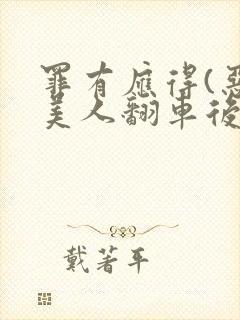 罪有應得(惡
美人翻車後
戴著平